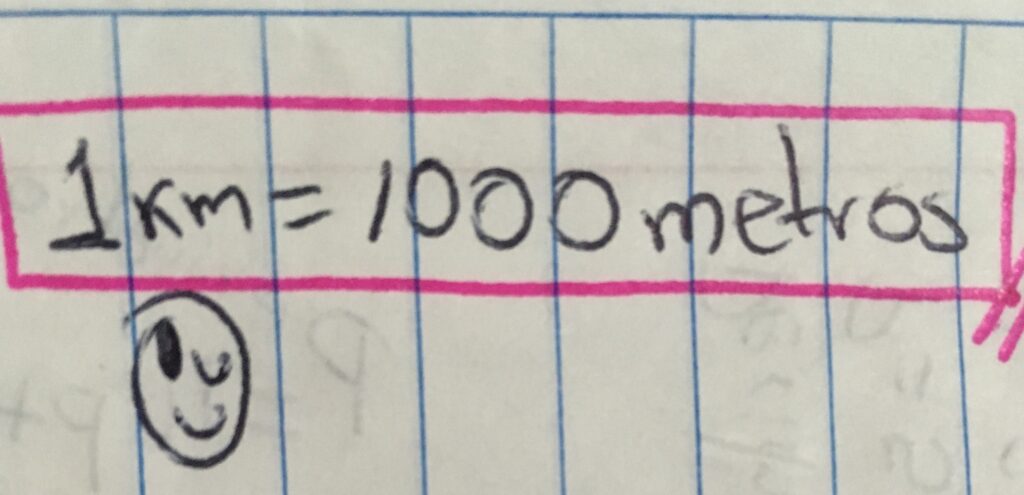 1 km = 1000 metros